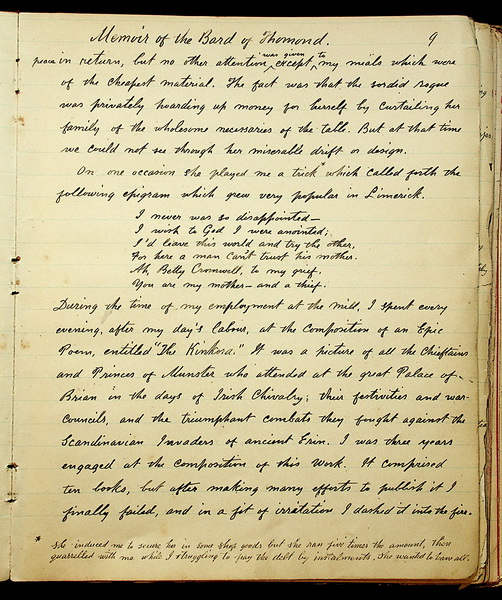 Memoir of the Bard of Thomond. 9
peace in return, but no other attention was given except to my meals which were
of the cheapest material. The fact was that the sordid rogue
was privately hoarding up money for herself by curtailing her
family of the wholesome necessaries of the table. But at that time
we could not see through her miserable drift or design.
On one occasion she played me a trick* which called forth the
following epigram which grew very popular in Limerick.
I never was so disappointed—
I wish to God I were anointed;
I'd leave this world and try the other,
For here a man can't trust his mother.
Ah, Betty Cromwell, to my grief,
You are my mother — and a thief.
During the time of my employment at the mill, I spent every
evening, after my day's labour, at the composition of an Epic
Poem, entitled "The Kinkora." It was a picture of all the Chieftains
and Princes of Munster who attended at the great Palace of
Brian in the days of Irish Chivalry; their festivities and war-
Councils, and the triumphant combats they fought against the
Scandinavian Invaders of ancient Erin. I was three years
engaged at the composition of this work. It comprised
ten books, but after making many efforts to publish it I
finally failed, and in a fit of irritation I dashed it into the fire.
* She induced me to secure her in some shop goods but she ran five times the amount, then
quarrelled with me while I struggling to pay the debt by instalments. She wanted to have all.